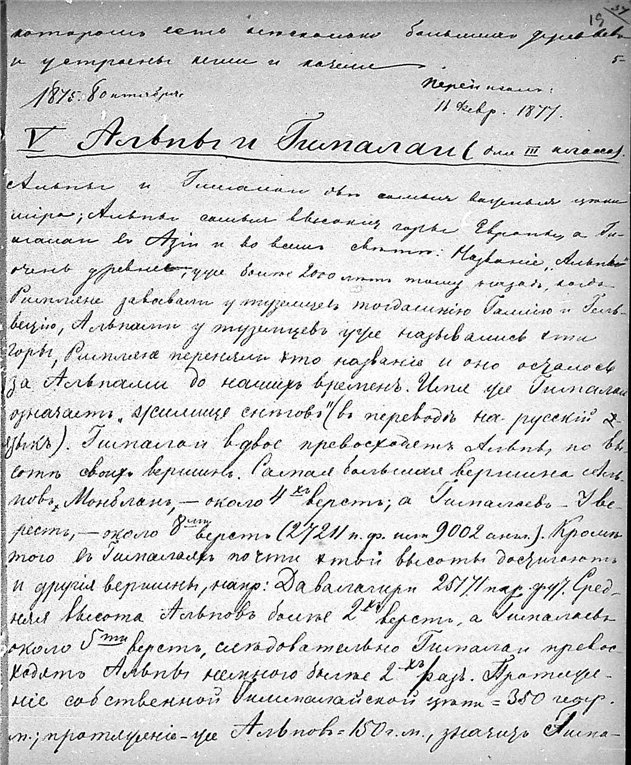 15 37
которомъ есть несколько большихъ деревьевъ
и устроены кегли и качели
5
1875. 8 октября.
Перепискъ:
11 Февр. 1877.
V Альпы и Гималаи (для III класса).
Альпы и Гималаи двѣ самыя важныя цѣпи
міра; Альпы самыя высокія горы Европы, а Ги-
малаи въ Азіи и во всемъ свѣтѣ. Названіе „Альпы"
очень древнее, уже болѣе 2000 лѣтъ тому назадъ, когда
Римляне завоевали у туземцевъ тогдашнюю Галлію и Гель-
вецію, Альпами у туземцевъ уже назывались эти
горы, Римляне переняли это названіе и оно осталось
за Альпами до нашихъ временъ. Имя же Гималаи
означаетъ „жилище снѣговъ" (въ переводѣ на русскій я-
зыкъ). Гималаи вдвое превосходятъ Альпы по вы-
сотѣ своихъ вершинъ. Самая большая вершина Аль-
повъ, Монбланъ, – около 4хъ верстъ; а Гималаевъ – Эве-
рестъ, – около 8ми верстъ (27211 п. ф. или 9002 англ.). Кромѣ
того въ Гималаяхъ почти этой высоты достигаютъ
и другія вершины, напр: Давалагири 25171 пар. фут. Сред-
няя высота Альповъ болѣе 2хъ верстъ, а Гималаевъ
около 5ти верстъ, слѣдовательно Гималаи превос-
ходятъ Альпы немного болѣе 2хъ разъ. Протяже-
ніе собственной Гималайской цѣпи = 350 геогр.
м.; протяженіе же Альповъ = 150 г. м., значитъ Гима-